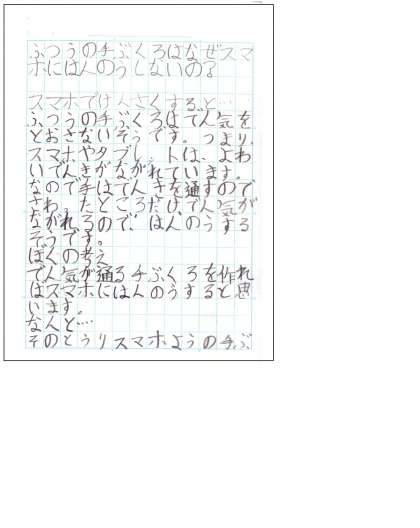 ふつうの手ぶくろはなぜスマ
ホにはんのうしないの?
スマホでけんさくすると…
ふつうの手ぶくろはでん気を
とおさないそうです。つまり、
スマホやタブレットは、よわ
いでんきがながれています。
なので手はでんきを通すので
さわったところだけでん気が
ながれるので、はんのうする
そうです。
ぼくの考え
でん気が通る手ぶくろを作れ
ばスマホにはんのうすると思
います。
なんと…
そのとうりスマホようの手ぶ